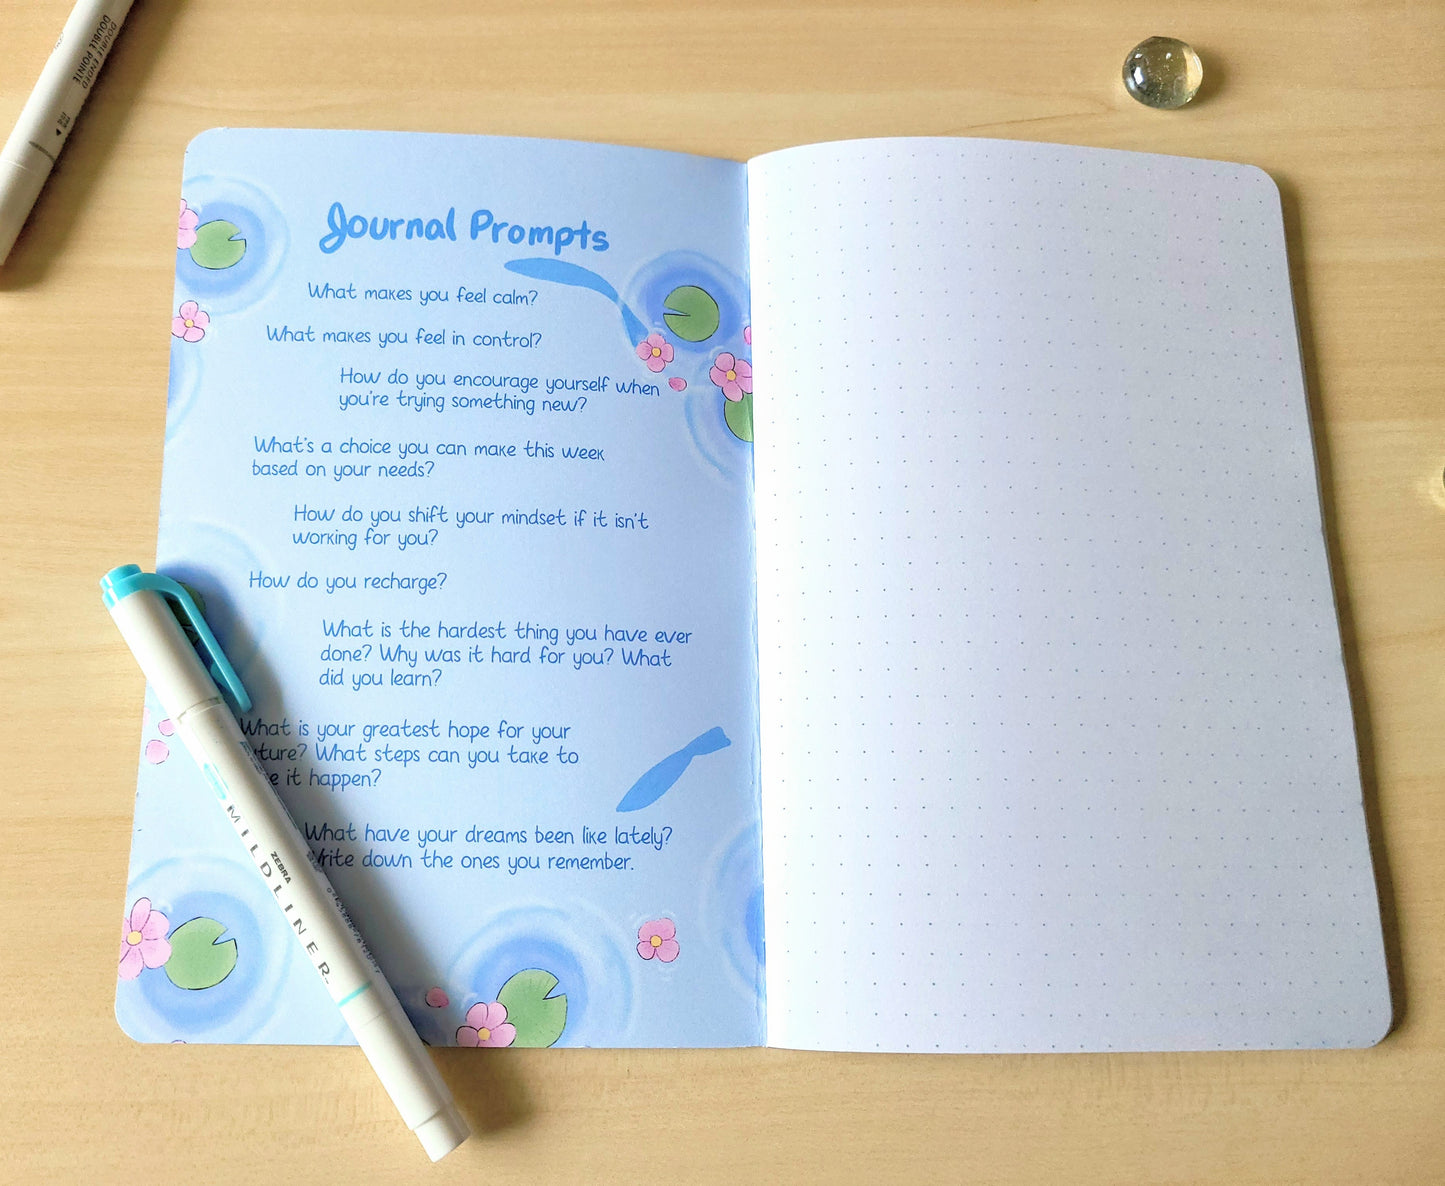 DOUBLE ENDED
DOUBLE POINTE
Journal Prompts
What makes you feel calm?
What makes you feel in control?
How do you encourage yourself when
you're trying something new?
What's a choice you can make this week
based on your needs?
How do you shift your mindset if it isn't
working for you?
How do you recharge?
What is the hardest thing you have ever
done? Why was it hard for you? What
did you learn?
What is your greatest hope for your
future? What steps can you take to
it happen?
What have your dreams been like lately?
Write down the ones you remember.
ZEBRA
MILDLINER